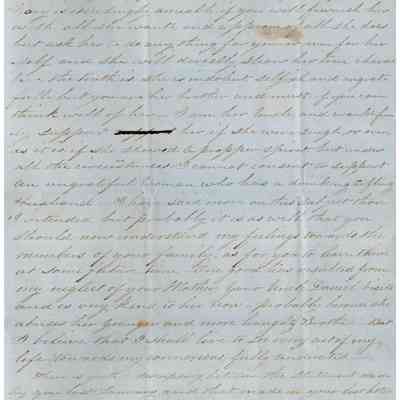 exceedingly amiable if you will furnish her
with all she wants and approve of all she does
but ask her to do any thing for you or even for her
self and she will directly shew her true charac
ter - the truth is she is indolent selfish and ungrate
ful but you are her brother and must if you can
think well of her. I am her Uncle and would glad
ly support her if she were single or even
as it is if she showed a propper spirit but under
all the circumstances I cannot consent to support
an ungrateful woman who has a drunking
Husband. I have said more on this subject than
I intended but probably it is as well that you
should now understand my feelings towards the
members of your family. as for you to learn them
at some future time. has resulted from
my neglect of your Mother your Uncle David
and is very kind to her now - probably because she
abuses her younger and more Brother. But
I believe that I shall live to see every act of my
life towards my connexions fully
There is a discrepancy between the statement made
by you last January and that made in your last letter